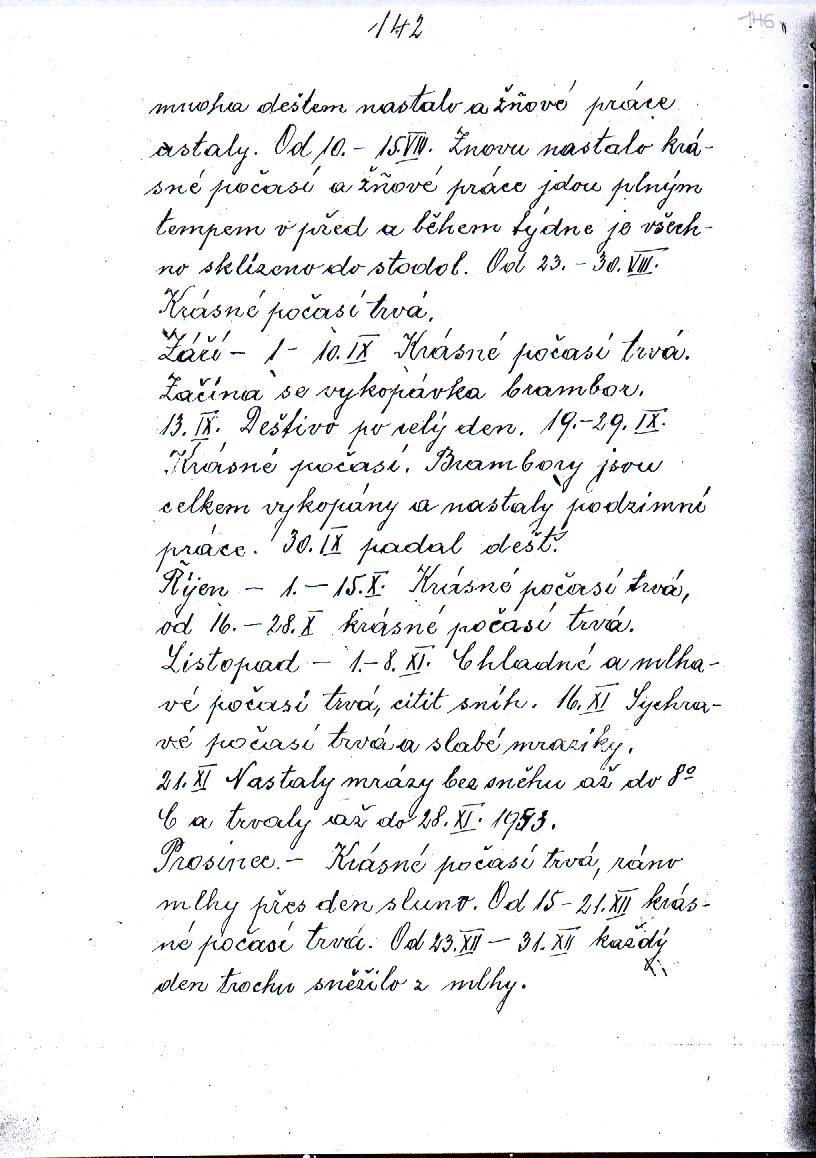 142
146
mnoha deštem nastalo a žňové práce
ustaly. Od 10. - 15 VIII. Znovu nastalo krá-
sné počasí a žňové práce jdou plným
tempem v před a během týdne je všech-
no sklízeno do stodol. Od 23. - 30. VIII.
Krásné počasí trvá.
Září - 1 - 10. IX Krásné počasí trvá.
Začína se vykopávka brambor.
13. IX. Deštivo po celý den. 19. - 29. IX.
Krásné počasí. Brambory jsou
celkem vykopány a nastaly podzimní
práce. 30. IX padal dešť.
Říjen - 1. - 15. X. Krásné počasí trvá,
od 16. - 28. X krásné počasí trvá.
Listopad - 1. - 8. XI. Chladné a mlha-
vé počasí trvá, citit sníh. 16. XI Sychra-
vé počasí trvá a slabé mraziky.
21. XI Nastaly mrázy bez sněhu až do 8º
C a trvaly až do 28. XI. 1953.
Prosinec. - Krásné počasí trvá, ráno
mlhy přes den sluno. Od 15 - 21. XII krás-
né počasí trvá. Od 23. XII - 31. XII každý
den trochu sněžilo z mlhy.